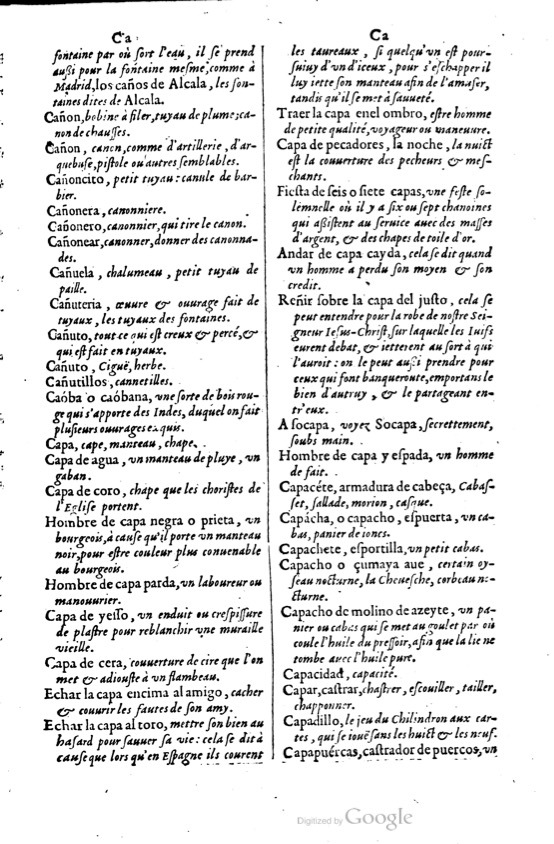 Ca
fontaine par où sort l'eau, il se prend
außi pour la fontaine mesme, comme à
Madrid, los caños de Alcala, les fon-
taines dites de Alcala.
Cañon, bobine à filer, tuyau de plume, ca-
non de chausses.
Cañon, canon, comme d'artillerie, d'ar-
quebuse, pistole ou autres semblables.
Cañoncito, petit tuyau: canule de bar-
bier.
Cañonera, canonniere.
Cañonero, canonnier, qui tire le canon.
Cañonear, canonner, donner des canonna-
des.
Cañuela, chalumeau, petit tuyau de
paille.
Cañuteria, œuure & ouurage fait de
tuyaux, les tuyaux des fontaines.
Cañuto, tout ce qui est creux & percé, &
qui est fait en tuyaux.
Cañuto, Ciguë, herbe.
Cañutillos, cannetilles.
Caóba o caóbana, vne sorte de bois rou-
ge qui s'apporte des Indes, duquel on fait
plusieurs ouurages exquis.
Capa, cape, manteau, chape.
Capa de agua, vn manteau de pluye, vn
gaban.
Capa de coro, chape que les choristes de
l'Eglise portent.
Hombre de capa negra o prieta, vn
bourgeois, à cause qu'il porte vn manteau
noir, pour estre couleur plus conuenable
au bourgeois.
Hombre de capa parda, vn laboureur ou
manouurier.
Capa de yesso, vn enduit ou crespissure
de plastre pour reblanchir vne muraille
vieille.
Capa de cera, couuerture de cire que l'on
met & adiouste à vn flambeau.
Echar la capa encima al amigo, cacher
& couurir les fautes de son amy.
Echar la capa al toro, mettre son bien au
hasard pour sauuer sa vie: cela se dit à
cause que lors qu'en Espagne ils courent
Ca
les taureaux, si quelqu'vn est pour-
suiuy d'vn d'iceux, pour s'eschapper il
luy iette son manteau afin de l'amuser,
tandis qu'il se met à sauueté.
Traer la capa en el ombro, estre homme
de petite qualité, voyageur ou maneuure.
Capa de pecadores, la noche, la nuict
est la couuerture des pecheurs & mes-
chants.
Fiesta de seis o siete capas, vne feste so-
lemnelle où il y a six ou sept chanoines
qui aßistent au seruice auec des masses
d'argent, & des chapes de toile d'or.
Andar de capa cayda, cela se dit quand
vn homme a perdu son moyen & son
credit.
Reñir sobre la capa del justo, cela se
peut entendre pour la robe de nostre Sei-
gneur Iesus-Christ, sur laquelle les Iuifs
eurent debat, & ietterent au sort à qui
l'auroit: on le peut außi prendre pour
ceux qui font banqueroute, emportans le
bien d'autruy, & le partageant en-
tr'eux.
A socapa, voyez Socapa, secrettement,
soubs main.
Hombre de capa y espada, vn homme
de fait.
Capacéte, armadura de cabeça, Cabas-
set, sallade, morion, casque.
Capácha, o capacho, espuerta, vn ca-
bas, panier de ioncs.
Capachete, esportilla, vn petit cabas.
Capacho o çumaya aue, certain oy-
seau nocturne, la Cheuesche, corbeau no-
cturne.
Capacho de molino de azeyte, vn pa-
nier ou cabas qui se met au goulet par où
coule l'huile du pressoir, afin que la lie ne
tombe auec l'huile pure.
Capacidad, capacité.
Capar, castrar, chastrer, escouiller, tailler,
chapponner.
Capadillo, le jeu du Chilindron aux car-
tes, qui se iouë sans les huict & les neuf.
Capapuércas, castrador de puercos, vn
Digitized by Google